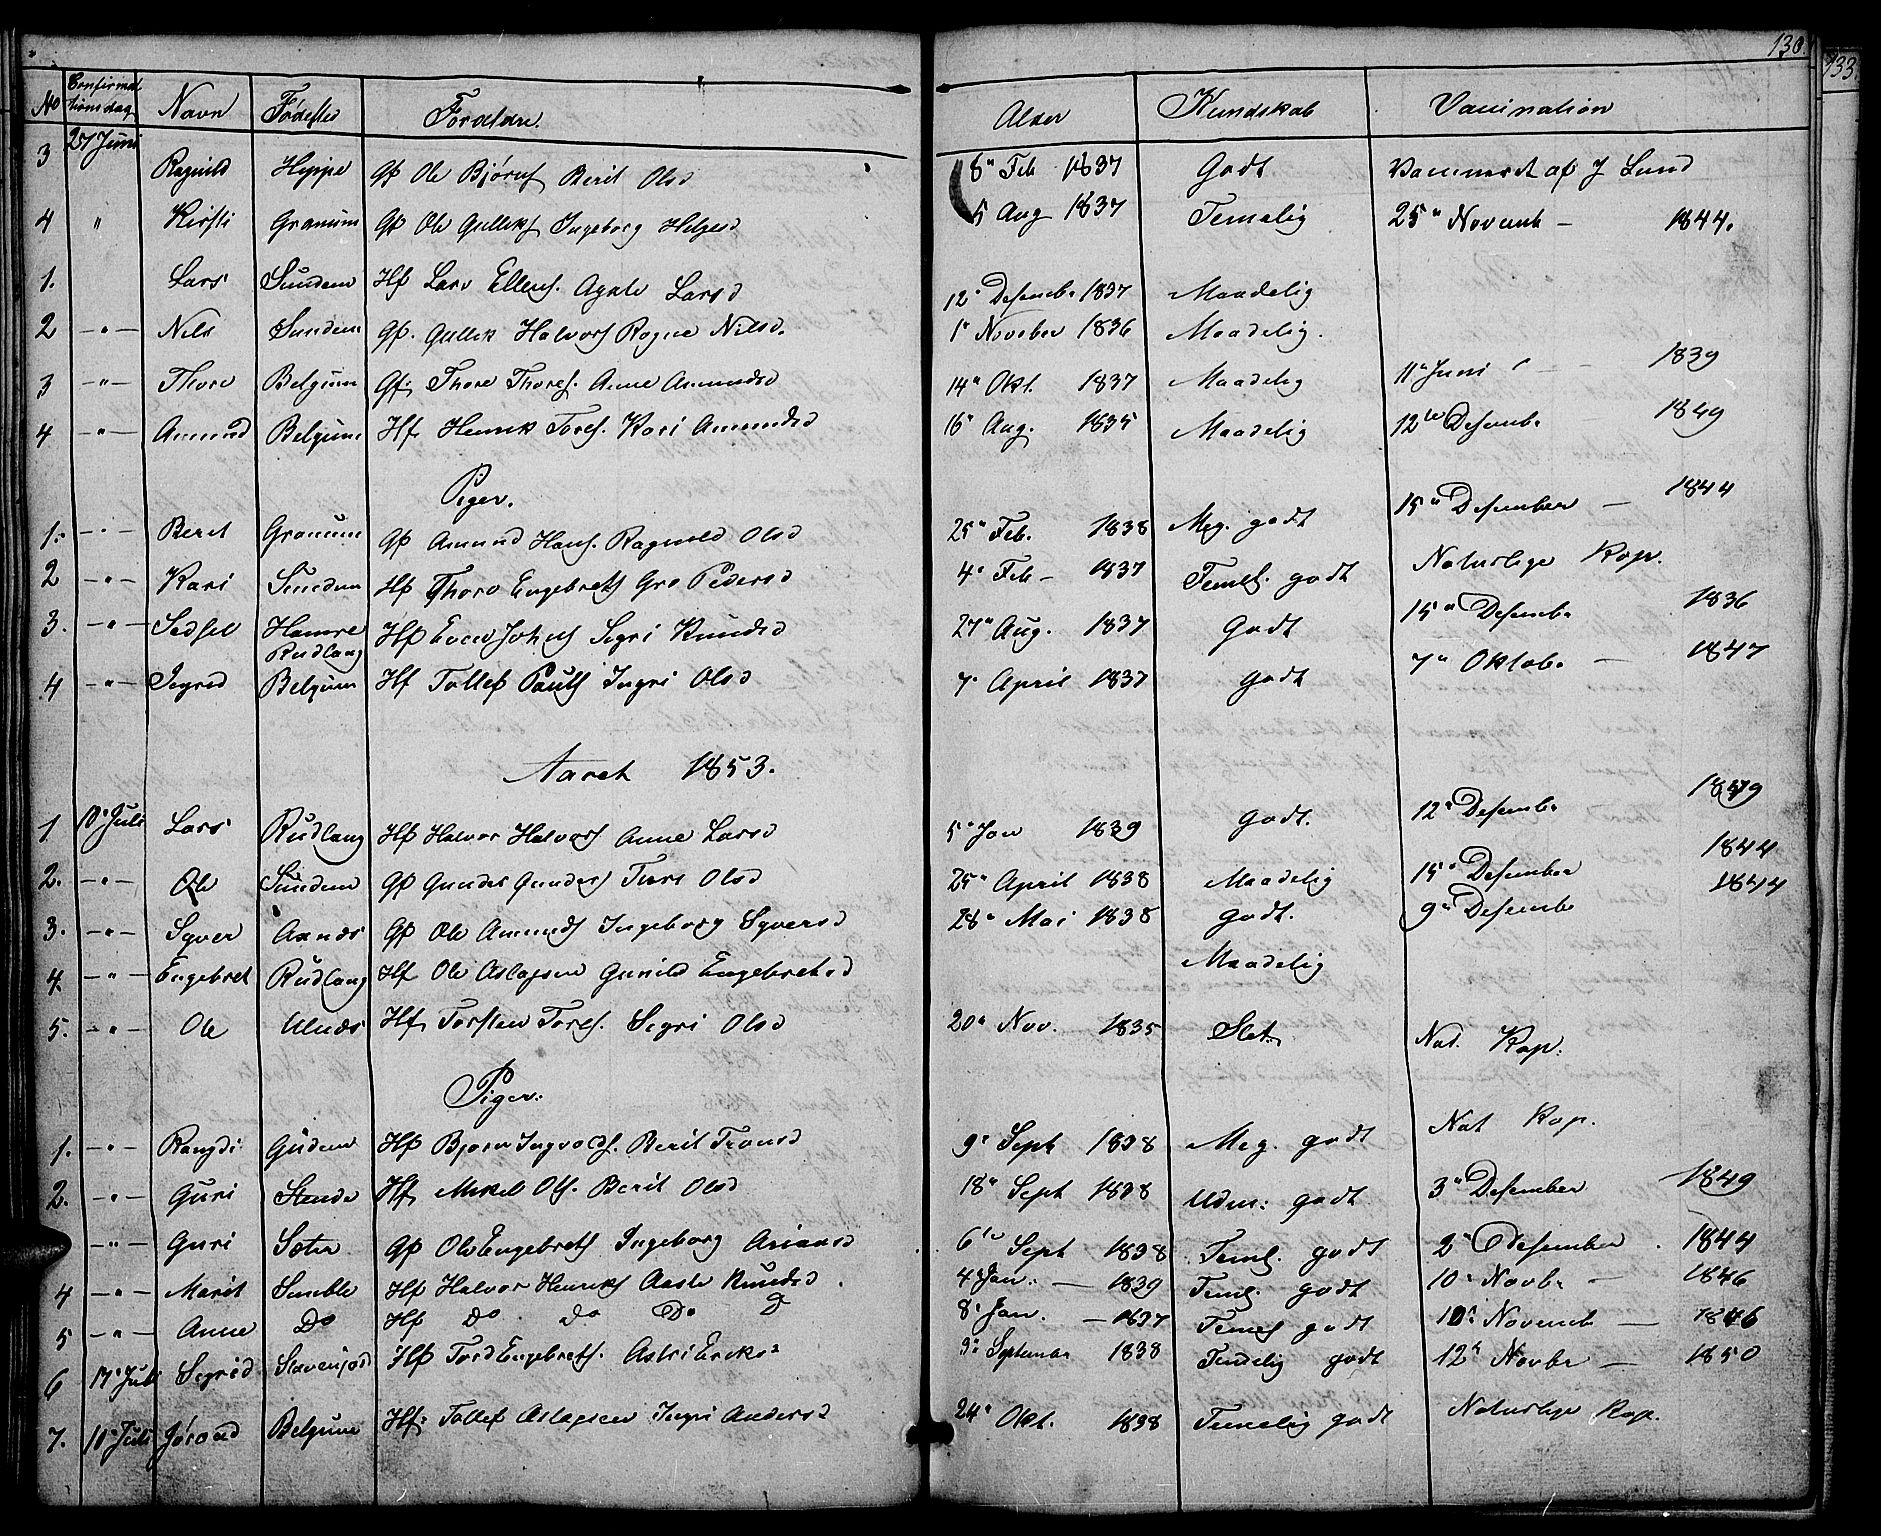 130.
133
No Confirmationsdag Navn Fødested Forældre. Alder Kundskab Vaccination
3 27 Juni Ragnild Hippe Gp Ole Bjørns Berit Olsd 8" Feb 1837 Godt Vaccineret af J Lund
4 " Kirsti Granum Gp Ole Gulleks Ingeborg Helgesd 5 Aug 1837 Temelig 25" Novemb – 1844.
1. Lars Sundem Hf Lars Ellens. Agate Larsd 12" Desemb. 1837 Maadelig
2 –"– Nils Sundem Gp. Gullek Halvors Ragne Nilsd. 1" Noveber 1836 Maadelig.
3 –"– Thore Belgum Gf. Thore Thores. Anne Amundsd 14" Okt. 1837 Maadelig 11" Juni 1839
4 –"– Amund Belgum Hf. Henrik Tores. Kari Amundsd 16" Aug. 1835 Maadelig 12te Desemb. 1849
Piger.
1. –"– Berit Granum Gp Amund Hans. Ragnild Olsd 25" Feb. 1838 Meg. godt 15" Desember – 1844
2 –"– Kari Sundem Hp Thore Engebrets Gro Pedersd 4" Feb – 1837 Temel. godt Naturlige Kop.
3. –"– Sedsel Hamre Rudlang Hp Even Johns Segri Knudsd 27" Aug. 1837 Godt 15" Desembe 1836
4 –"– Ingred Belgum Hf Tollef Pauls Ingri Olsd 7" April 1837 godt 7" Oktob. – 1847
Aaret 1853.
1 10" Juli Lars Rudlang Hp Halvor Halvors Anne Larsd 5" Jan 1839 godt. 12" Desembe 1849
2. –"– Ole Sundem Gp Gunder Gunders Ture Olsd 25" April 1838 Maadelig 15" Desember 1844
3. –"– Syver Axnæs Gp Ole Amunds Ingeborg Syversd 28" Mai 1838 godt. 9" Desembe 1844
4. –"– Engebret Rudlang Hf Ole Aslagsen Gunild Engebretsd Maadelig
5. –"– Ole Ulnæs Hf Torsten Tores. Segri Olsd 20" Nov. 1835 Slet. Nat. Kop.
Piger.
1. –"– Rangdi Gudem Hp Bjørn Ingvolds. Berit Tronsd 9" Sept 1838 Meg. godt Nat Kop.
2. –"– Guri Stende Hf Mikel Ols. Berit Olsd 18" Sept 1838 Udm: godt 3" Desember 1849
–"– Guri Sæter Gp Ole Engebrets Ingeborg Ariansd 6te Sept 1838 Teml. godt 2" Desember . 1844
4 –"– Marit Semble Hp Halvor Henriks Aaste Knudsd. 4" Jan: – 1839 Teml. godt 10" Novbr – 1846
5 –"– Anne Do Hp Do do Do 8" Jan. – 1837 Temel godt 10" Novemb – 1846
6 17" Juli Segrid Slavenjord Hp Tord Engebrets. Astri Eriks 3" Septembr 1838 Temelig godt 12" Novbr – 1850
7. 10" Juli Jørand Belgum Hf: Tollef Aslagsen Ingri Andersd 24" Okt. 1838 Temelig godt Naturlige Kop.